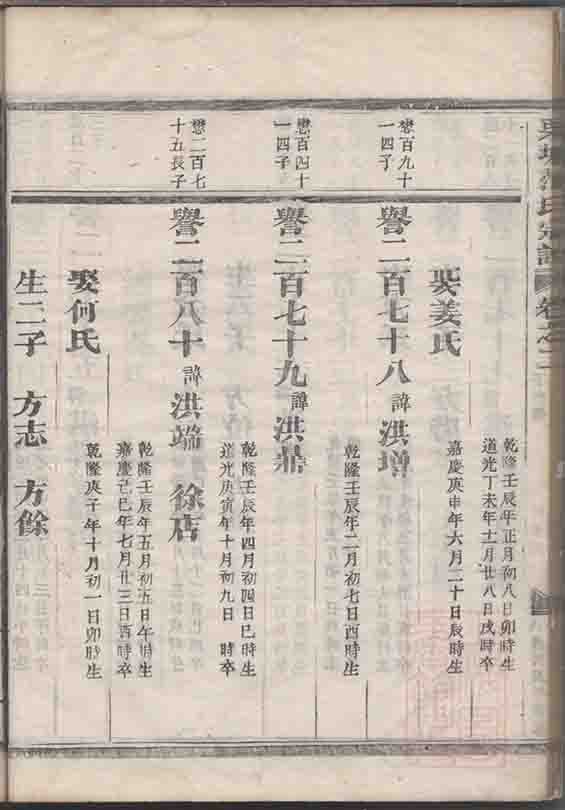 氏宗譜 卷之二
懋百九十
一四子
譽二百七十八 諱 洪增
乾隆壬辰年正月初八日卯時生
道光丁未年十二月廿八日戌時卒
娶姜氏
嘉慶庚申年六月二十日辰時生
懋百四十
一四子
譽二百七十九 諱 洪鼎
乾隆壬辰年二月初七日酉時生
懋二百七
十五長子
譽二百八十 諱 洪端 徐店
乾隆壬辰年四月初四日巳時生
道光庚寅年十月初九日 時卒
乾隆壬辰年五月初五日午時生
嘉慶己巳年七月廿三日酉時卒
娶何氏
乾隆庚子年十月初一日卯時生
生二子 方志 方餘